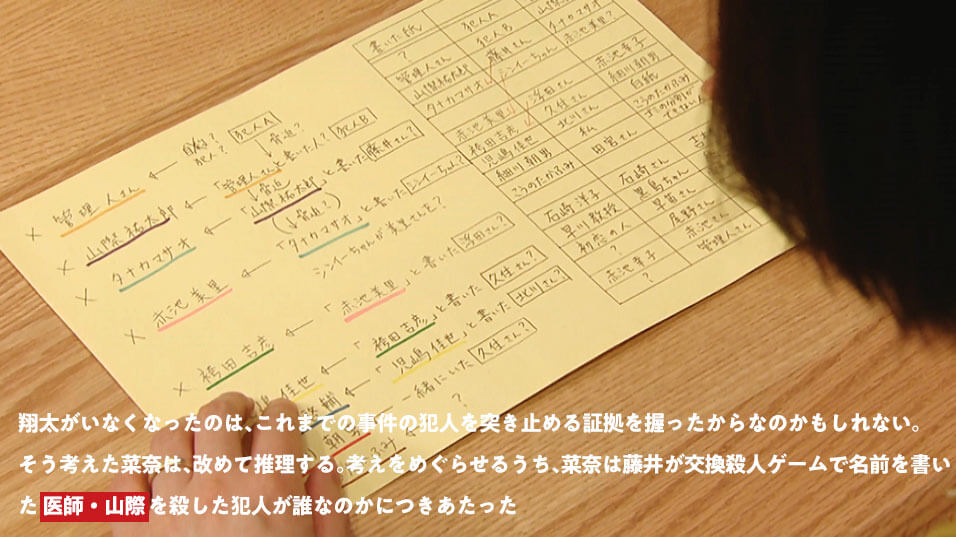 書いた紙
? 犯人A
管理人さん 犯人B タナカマサオ
山際祐太郎 藤井さん 赤池美里?
タナカマサオ シンイーちゃん
赤池美里 浮田さん 赤池幸子
袴田吉彦 久住さん 細川朝男
児嶋佳世 北川さん 白紙
細川朝男 私 こうのたかふみ
こうのたかふみ 田宮さん ゴミの分別ができない人
石崎洋子 石崎さん
早川教授 黒島ちゃん
初恋の人 早苗さん
尾野さん
赤池幸子 赤池さん
? 管理人さん
× 管理人さん ← 犯人? 犯人A
脅迫?
× 山際祐太郎 ← 「管理人さん」と書いた人? 犯人B
脅迫
× タナカマサオ ← 「山際祐太郎」と書いた 藤井さん?
(脅迫?)
「タナカマサオ」と書いた シンイーちゃん?
シンイーちゃんが美里さんを?
× 赤池美里 ← 「赤池美里」と書いた 浮田さん?
× 袴田吉彦 ← 「袴田吉彦」と書いた 久住さん?
佳世 ← 「児嶋佳世」と書いた 北川さん?
一緒にいた 久住さん?
朝 ?
翔太がいなくなったのは、これまでの事件の犯人を突き止める証拠を握ったからなのかもしれない。
そう考えた菜奈は、改めて推理する。考えをめぐらせるうち、菜奈は藤井が交換殺人ゲームで名前を書い
た 医師・山際 を殺した犯人が誰なのかにつきあたった